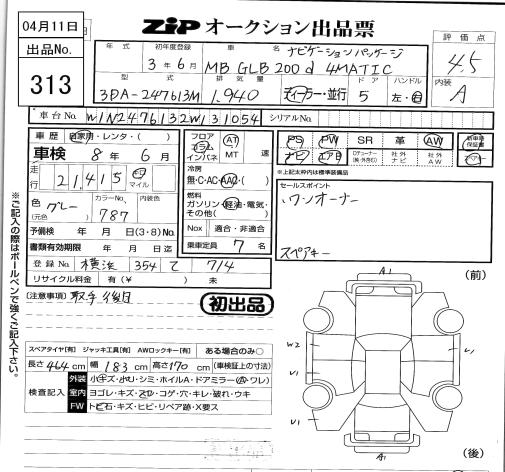 04月11日
出品No.
313
ZIP オークション出品票
年式 初年度登録 車名
3年6月 ナビゲーションパッケージ
MB GLB 200 d 4MATIC
型式 排気量 ディーラー・並行 ドア ハンドル
3DA-247613M 1.940 5 左・右
評価点
4.5
内装
A
車台No. W1N2476132W131054 シリアルNo.
車歴 自家用・レンタ・( )
車検 8年6月
走行 21,415 キロ マイル
色(元色) グレー カラーNo. 787 内装色
予備検 年 月 日(3・8)No.
書類有効期限 年 月 日迄
登録No. 横浜 354 て 714
リサイクル料金 有(¥ ) 未
フロア コラム インパネ AT MT 速
冷房 無・C・AC・AAC・( )
燃料 ガソリン・軽油・電気・その他( )
Nox 適合・非適合
乗車定員 7名
PS PW SR 革 AW 新車時保証書
ナビ エアB 社外ナビ 社外AW
※上記太枠内は標準装備品
セールスポイント
ワンオーナー
スペアキー
(注意事項) 取手後日
初出品
※ご記入の際はボールペンで強くご記入下さい。
スペアタイヤ[有] ジャッキ工具[有] AWロックキー[有] ある場合のみ○
長さ464cm 幅183cm 高さ170cm (車検証上の寸法)
検査記入
外装 小キズ・小凹・シミ・ホイルA・ドアミラー(A・ワレ)
室内 ヨゴレ・キズ・スレ・コゲ・穴・キレ・破れ・ウキ
FW トビ石・キズ・ヒビ・リペア跡・X要ス
(前)
A1
W2
V1
V1
V1
V1
A1
(後)